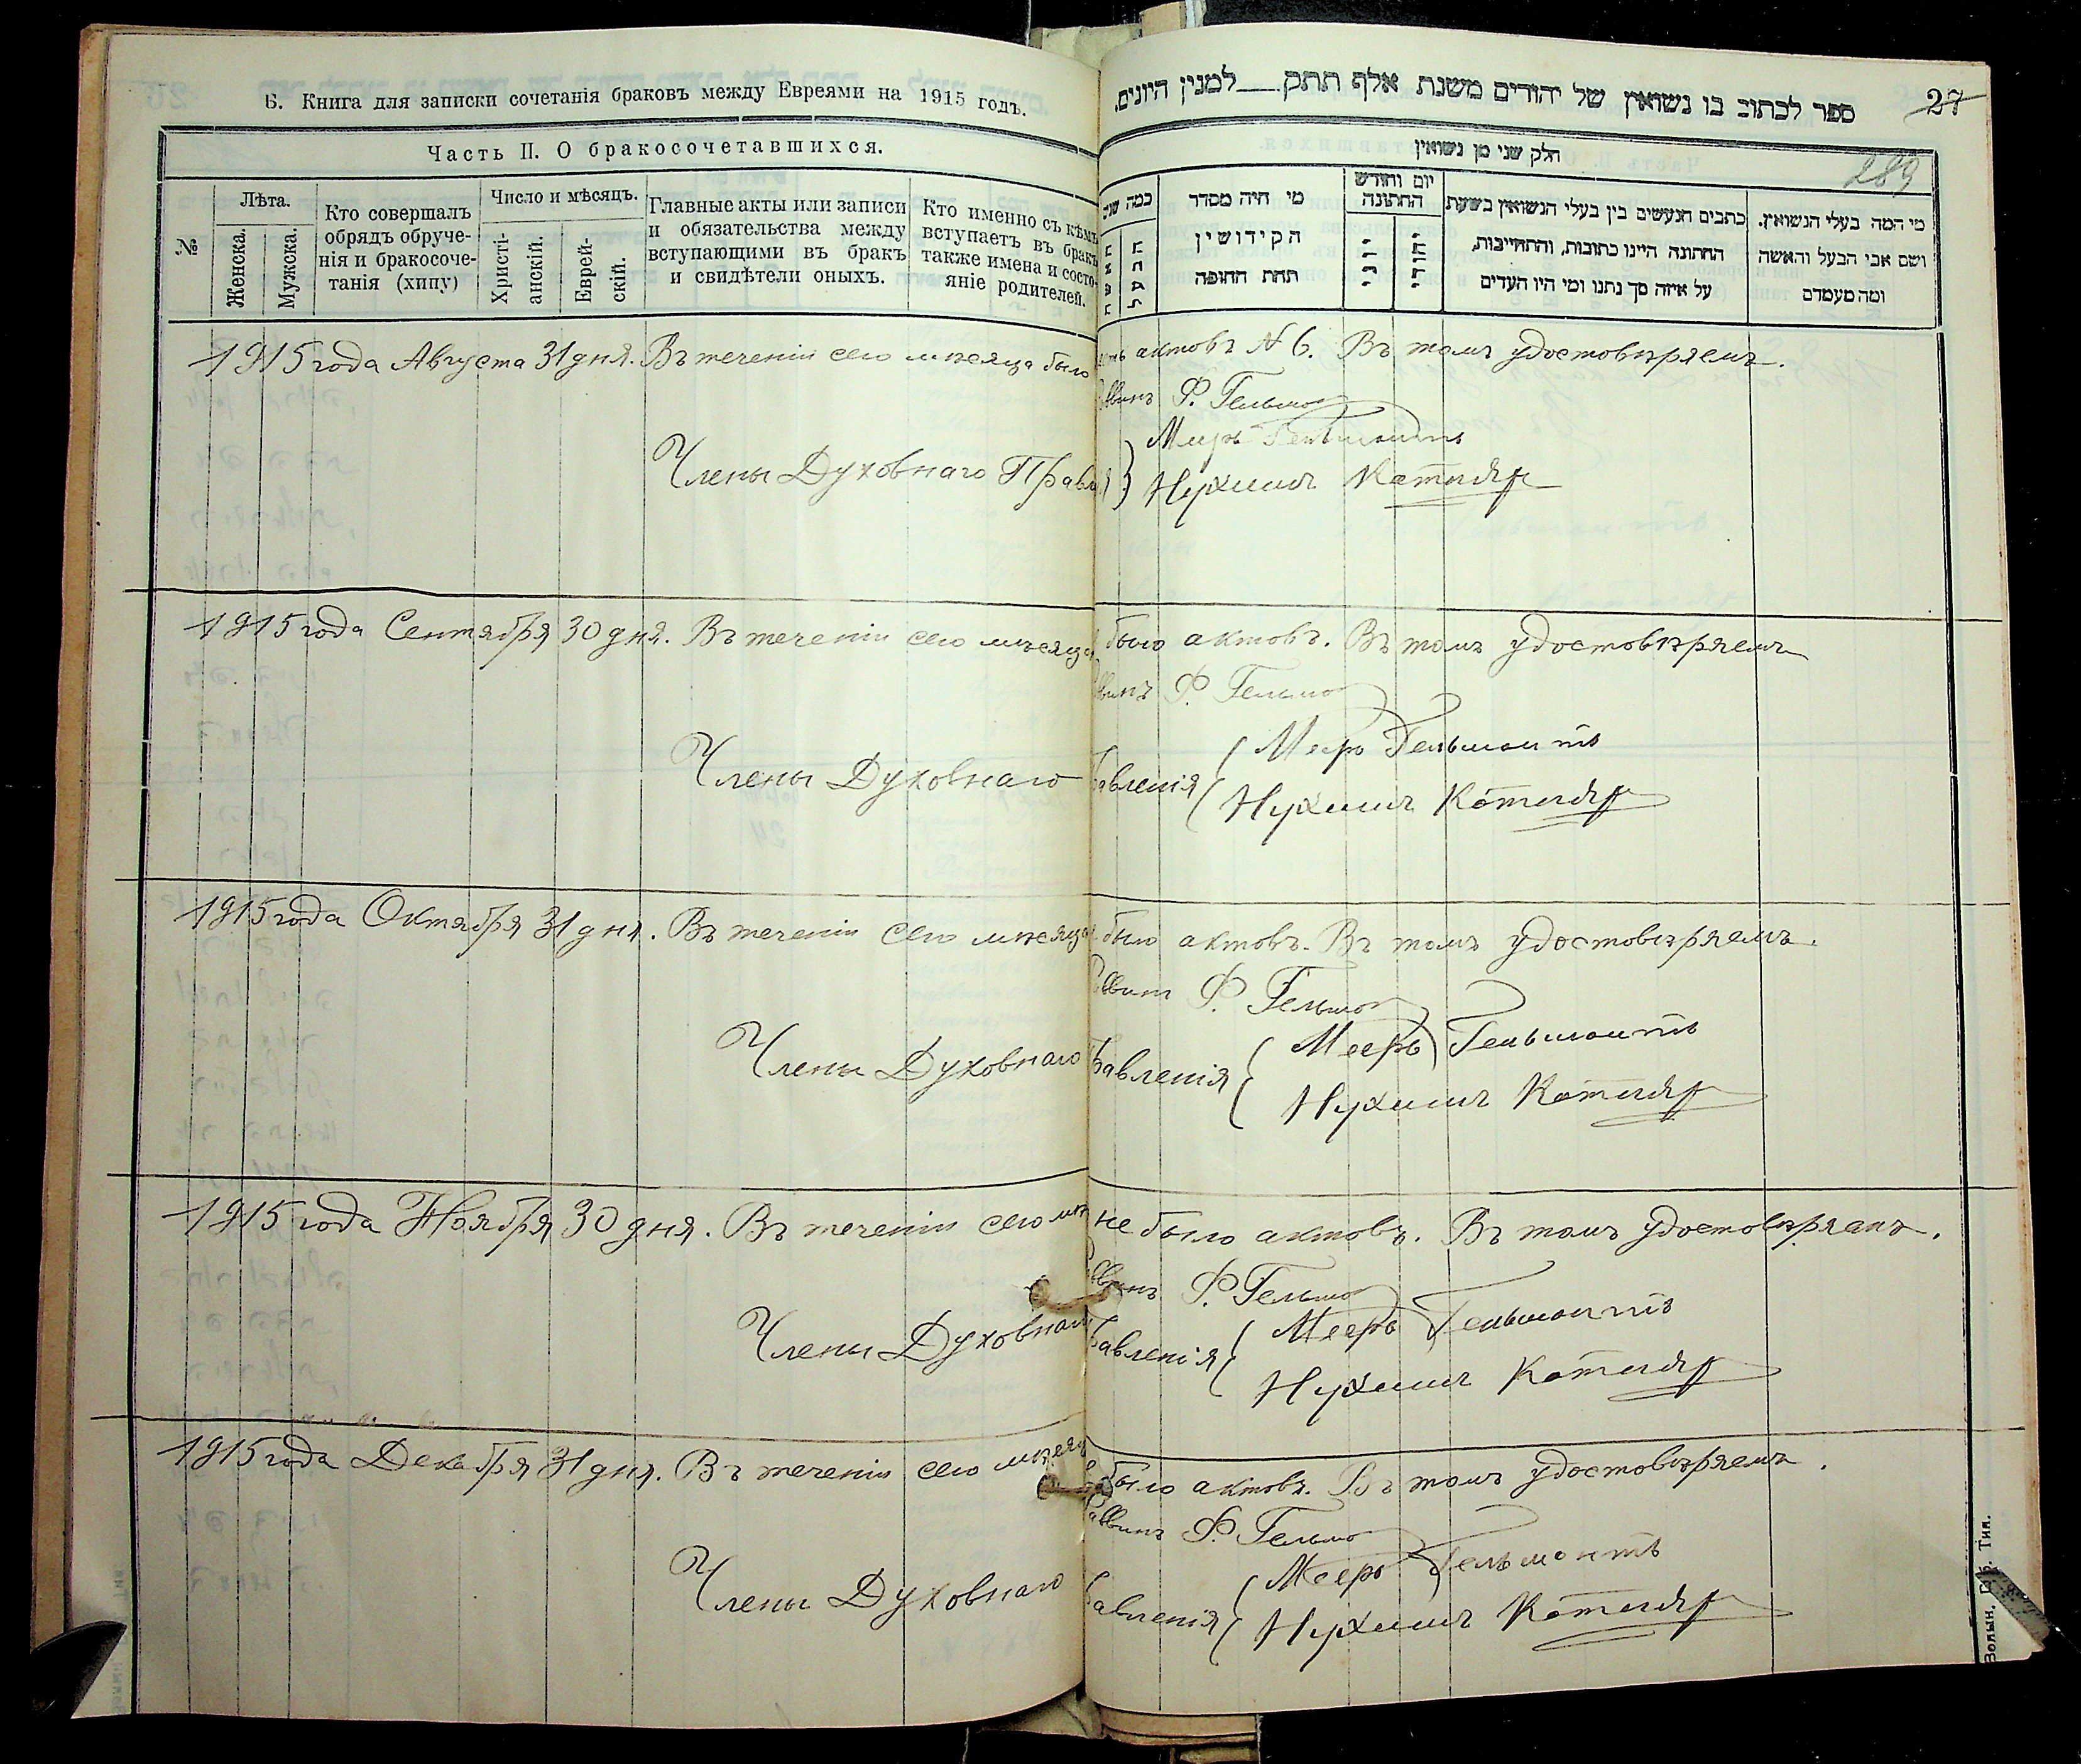 Б. Книга для записки сочетанія браковъ между Евреями на 1915 годъ.
Часть II. О бракосочетавшихся.
№
Лѣта.
Женска.
Мужска.
Кто совершалъ
обрядъ обруче-
нія и бракосоче-
танія (хипу)
Число и мѣсяцъ.
Христі-
анскій.
Еврей-
скій.
Главные акты или записи
и обязательства между
вступающими въ бракъ
и свидѣтели оныхъ.
Кто именно съ кѣмъ
вступаетъ въ бракъ
также имена и состо-
яніе родителей.
ספר לכתוב בו נשואין של יהודים משנת אלף תתק למנין היונים.
27
289
חלק שני מן נשואין
כמה שנ
מי היה מסדר
הקידושין
תחת החופה
יום וחודש
החתונה
כתבים הנעשים בין בעלי הנשואין בשעת
החתונה היינו כתובות, והתחייבות,
על איזה סך נתנו ומי היו העדים
מי המה בעלי הנשואין.
ושם אבי הבעל והאשה
ומה מעמדם
1915 года Августа 31 дня. Въ теченіи сего мѣсяца было актовъ N 6. Въ томъ удостовѣряемъ.
Ф. Гельмо
Члены Духовнаго Мееръ Гельмонтъ
Нухимъ Котляр
1915 года Сентября 30 дня. Въ теченіи сего мѣсяца было актовъ. Въ томъ удостовѣряемъ
Ф. Гельмо
Члены Духовнаго авленія Мееръ Гельмонтъ
Нухимъ Котляр
1915 года Октября 31 дня. Въ теченіи сего мѣсяца было актовъ. Въ томъ удостовѣряемъ.
Ф. Гельмо
Члены Духовнаго авленія Мееръ Гельмонтъ
Нухимъ Котляр
1915 года Ноября 30 дня. Въ теченіи сего мѣ не было актовъ. Въ томъ удостовѣряемъ.
Ф. Гельмо
Члены Духовнаго авленія Мееръ Гельмонтъ
Нухимъ Котляр
1915 года Декабря 31 дня. Въ теченіи сего мѣсяц было актовъ. Въ томъ удостовѣряемъ.
аввинъ Ф. Гельмо
Члены Духовнаго авленія Мееръ Гельмонтъ
Нухимъ Котляр
Волын. Губ. Тип.